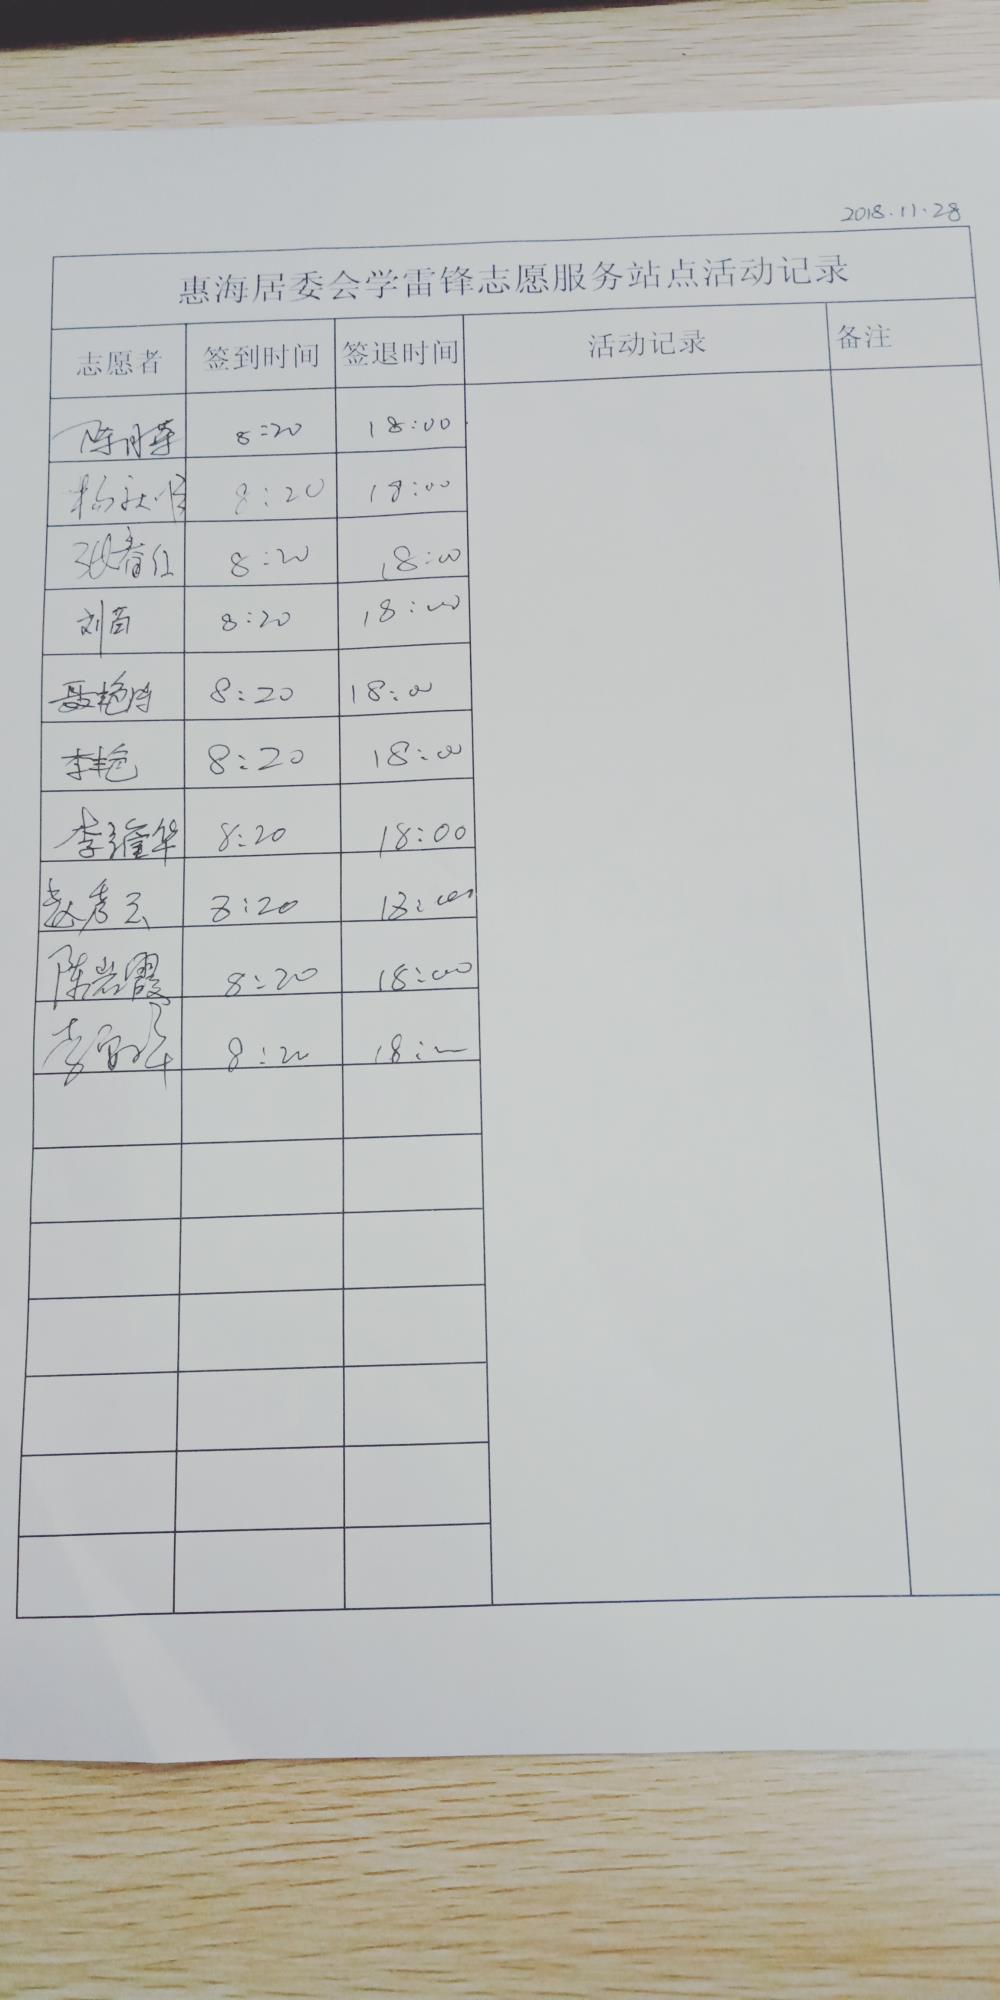 2018.11.28
惠海居委会学雷锋志愿服务站点活动记录
志愿者 签到时间 签退时间 活动记录 备注
陈月華 8:20 18:00
8:20 18:00
张春红 8:20 18:00
刘苗 8:20 18:00
聂艳萍 8:20 18:00
李艳 8:20 18:00
李继华 8:20 18:00
赵秀云 8:20 18:00
陈岩霞 8:20 18:00
李 8:20 18:00